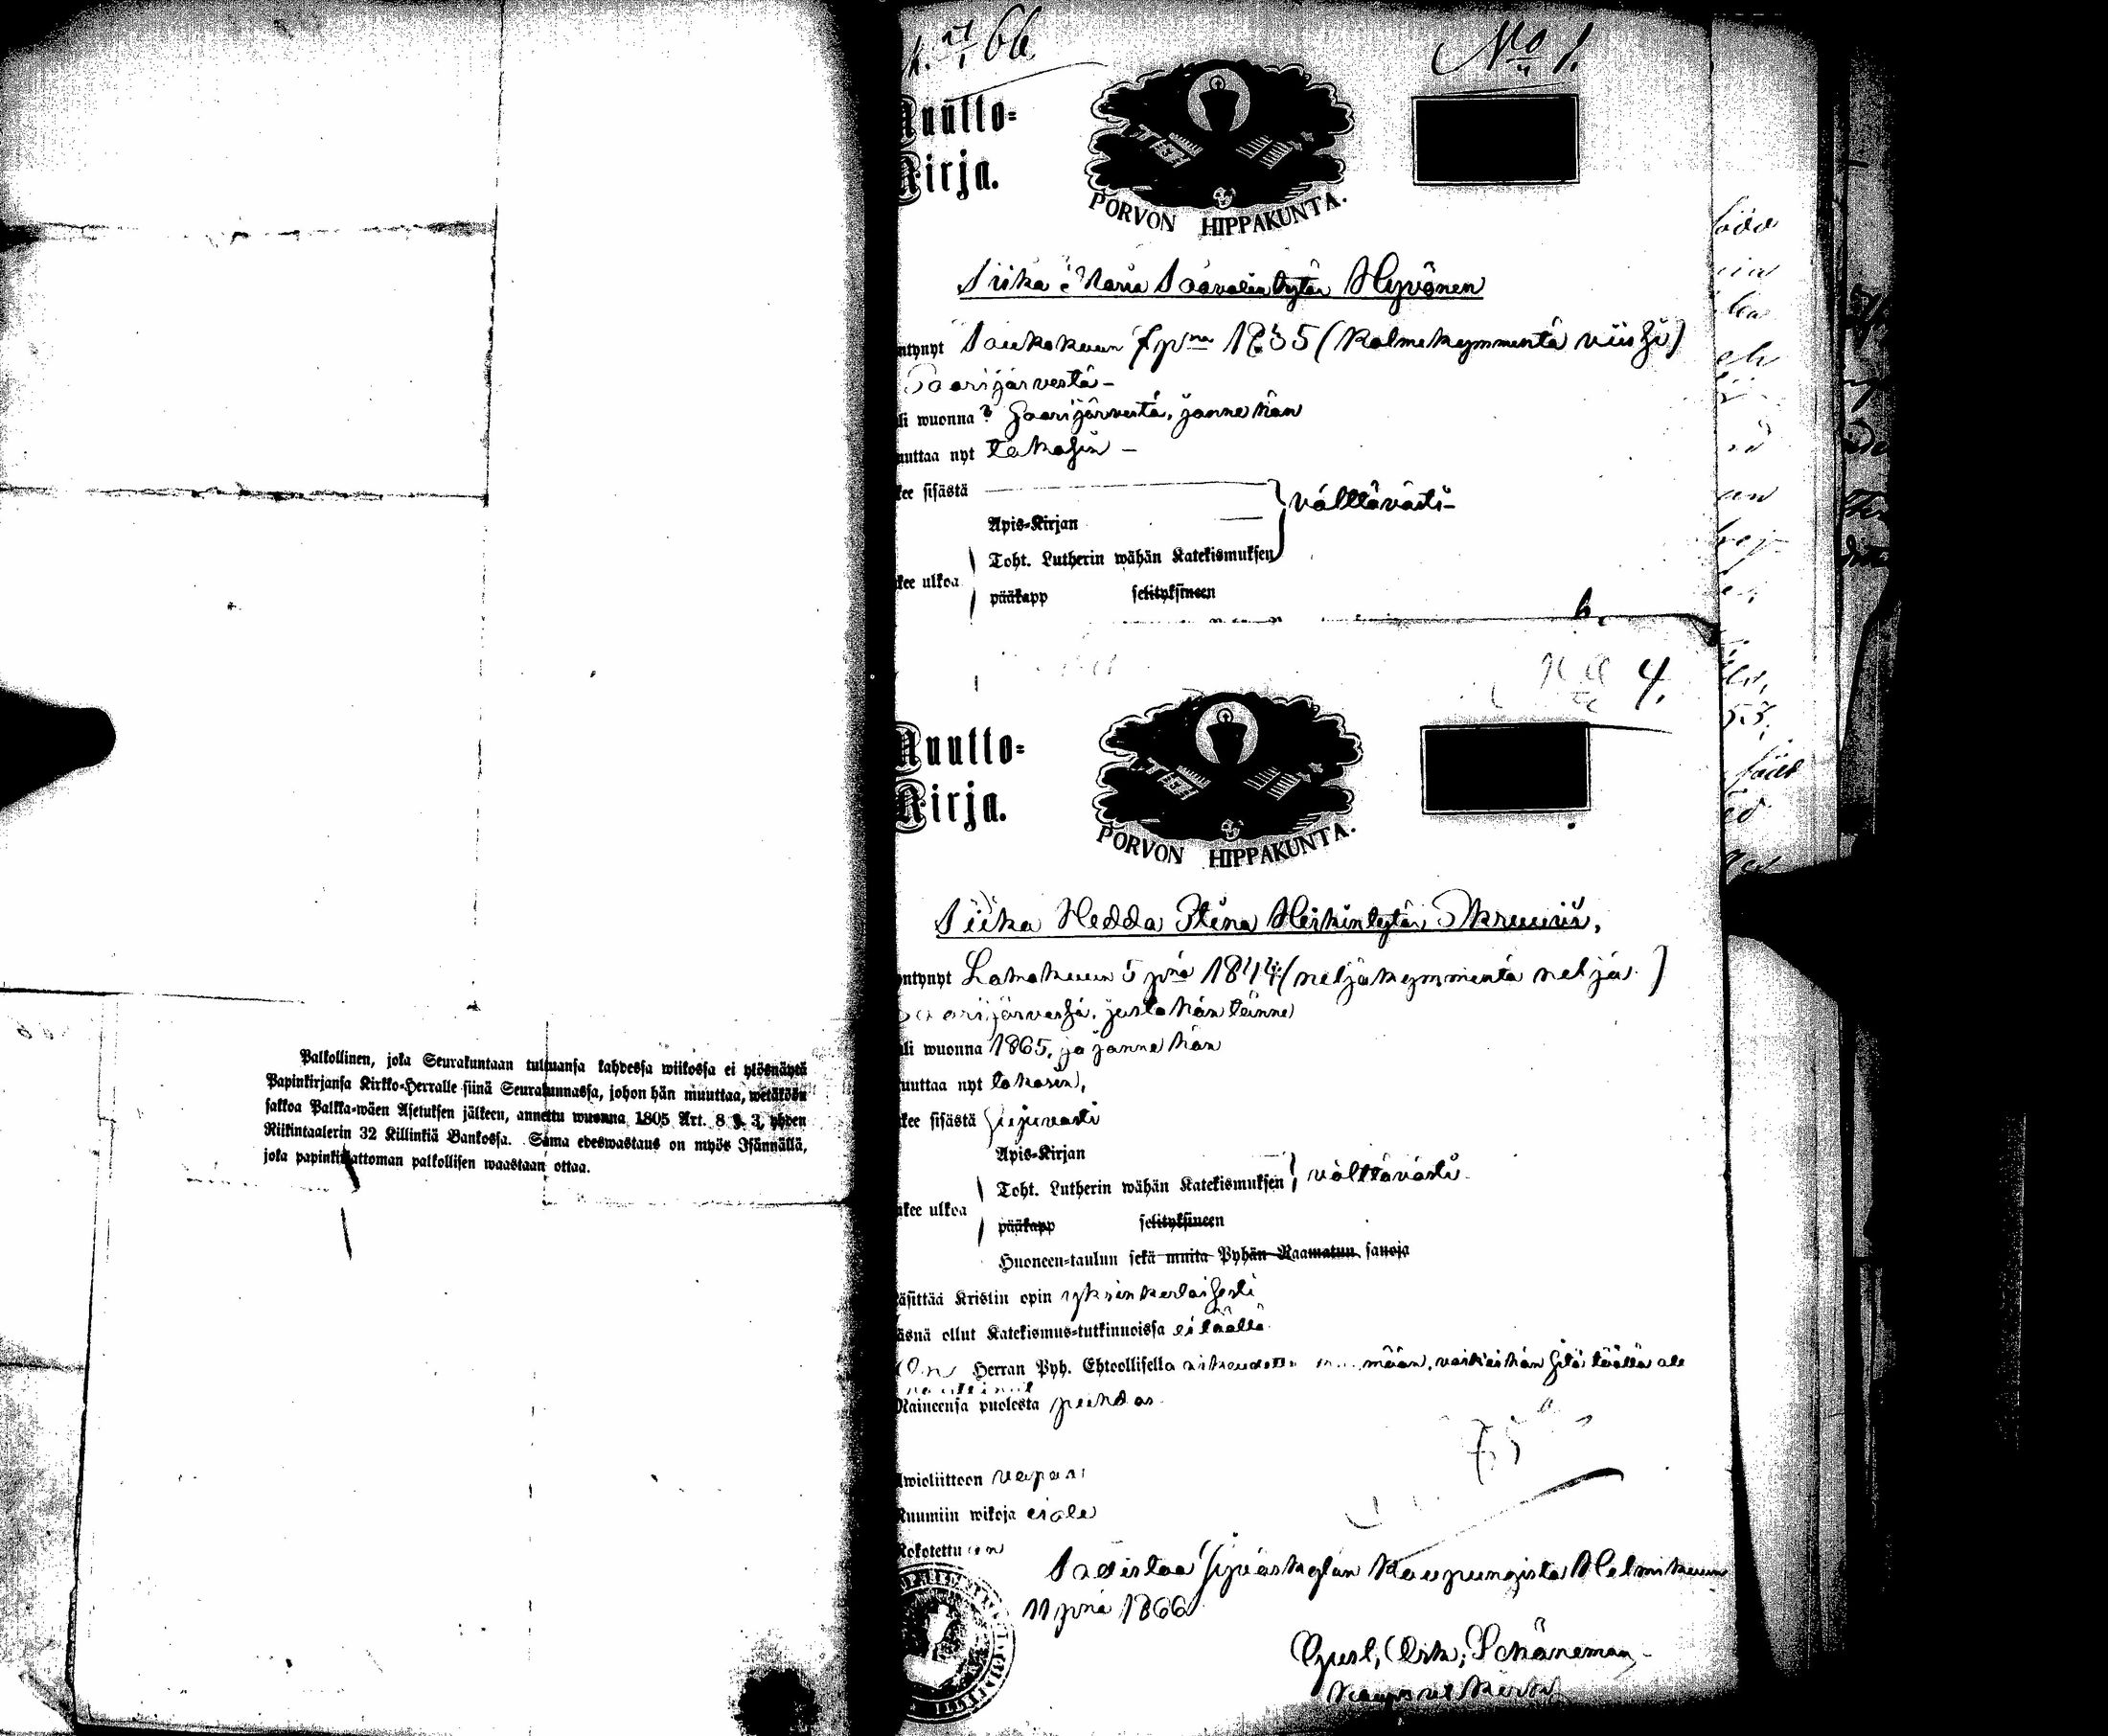 Palkollinen, joka Seurakuntaan tultuansa kahdessa wiikossa ei ylösnäytä
Papinkirjansa Kirkko-Herralle siinä Seurakunnassa, johon hän muuttaa, wetäköön
sakkoa Palkka-wäen Asetuksen jälkeen, annettu wuonna 1805 Art. 8 §. 3, yhden
Riikintaalerin 32 Killinkiä Bankossa. Sama edeswastaus on myös Isännällä,
joka papinkirjattoman palkollisen waastaan ottaa.
66
No 1.
Muutto=
Kirja.
PORVON HIPPAKUNTA.
Piika Maria Paavalintytär Hyvönen
ntynyt Toukokuun 7 pnä 1835 (kolmekymmentä viisi)
Saarijärvestä –
li wuonna ? Saarijärvestä, jonne hän
uuttaa nyt takasin –
kee sisästä
Apis-Kirjan
Toht. Lutherin wähän Katekismuksen
välttävästi –
kee ulkoa
pääkapp selityksineen
4.
Muutto=
Kirja.
PORVON HIPPAKUNTA.
Piika Hedda Stina Heikintytär
ntynyt Lokakuun 5 pnä 1844 (neljäkymmentä neljä)
Saarijärvessä, josta hän tänne
li wuonna 1865, ja jonne hän
uuttaa nyt takasin,
kee sisästä sujuvasti
Apis-Kirjan
Toht. Lutherin wähän Katekismuksen välttävästi
kee ulkoa
pääkapp selityksineen
Huoneen-taulun sekä muita Pyhän Raamatun sanoja
äsittää Kristin opin yksinkertaisesti
äsnä ollut Katekismus-tutkinnoissa ei täällä
On Herran Pyh. Ehtoollisella mään, vaik'ei hän sitä täällä ole
nauttinut
Maineensa puolesta puhdas
Awioliittoon vapaa
Ruumiin wikoja ei ole
Rokotettu on
Todistaa Jyväskylän Kaupungista Helmikuun
11 pnä 1866
Gust. Osk. Schöneman